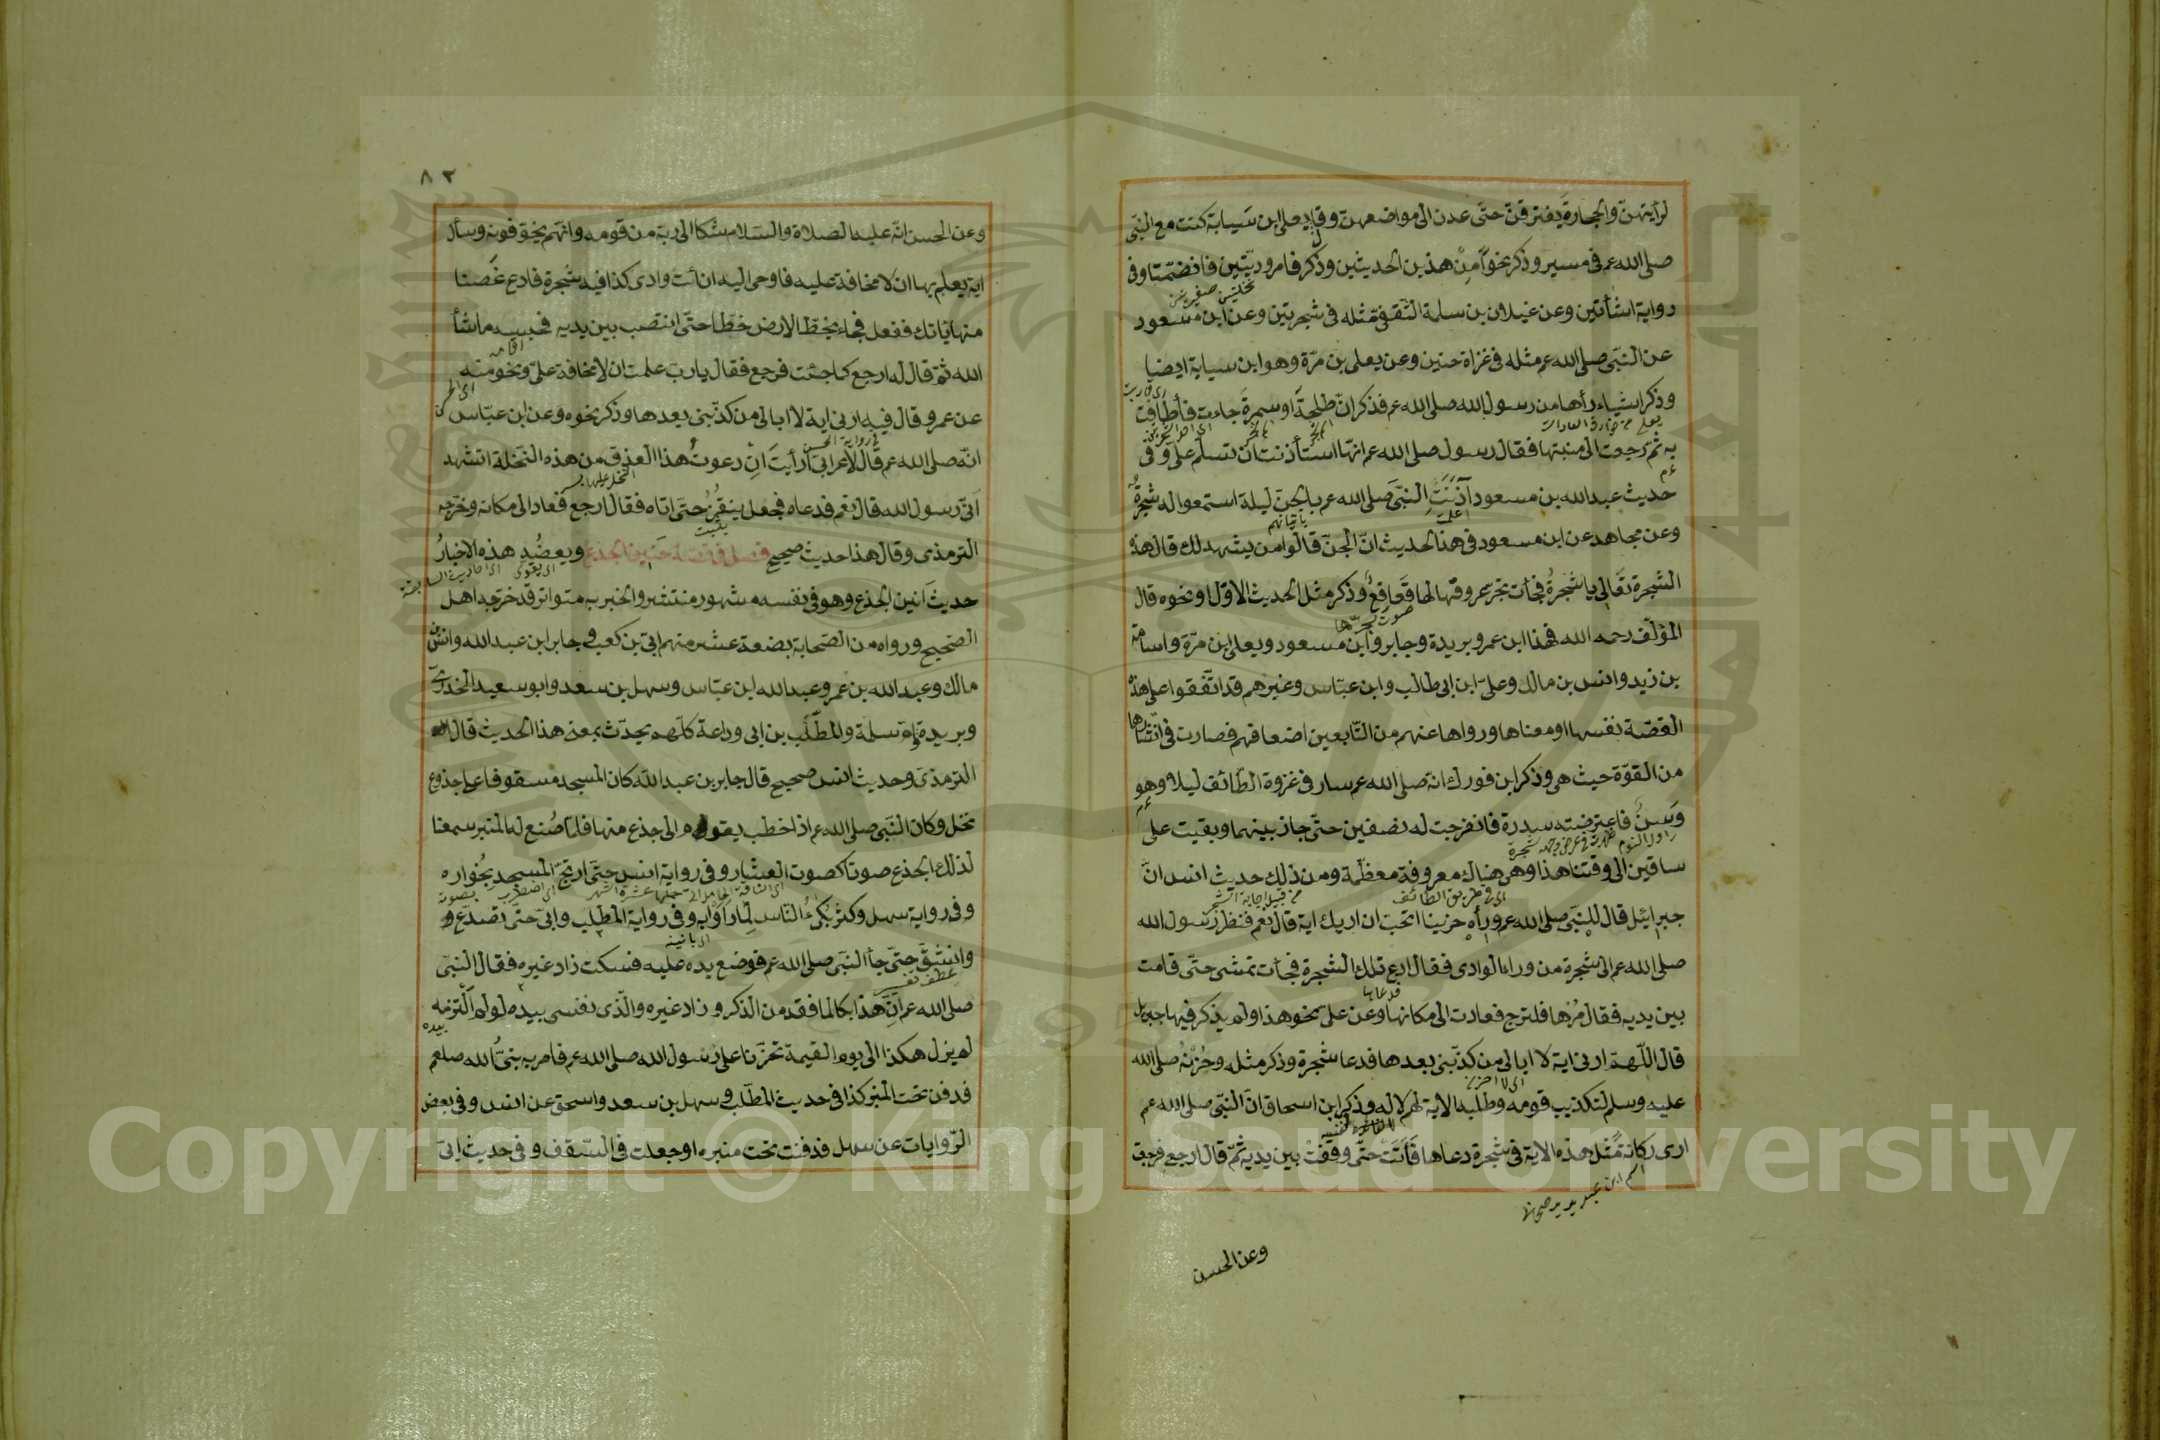 لرأيتهن والحجارة يفترقن حتى عدن الى مواضعهن وقال يعلى ابن سيابة كنت مع النبى
صلى الله عم فى مسير وذكر نحوا من هذين الحديثين وذكر فامر وديتين فانضمتا وفى
رواية اشأتين وعن غيلان بن سلمة الثقفى مثله فى شجرتين وعن ابن مسعود
عن النبى صلى الله عم مثله فى غزاة حنين وعن يعلى بن مرة وهو ابن سيابة ايضا
وذكر اشياء رأها من رسول الله صلى الله عم فذكر ان طلحة او سمرة جاءت فأطافت
به ثم رجعت الى منبتها فقال رسول صلى الله عم انها استأذنت ان تسلم على وفى
حديث عبد الله بن مسعود آذنت النبى صلى الله عم بالجن ليلة استمعوا له شجرة
وعن مجاهد عن ابن مسعود فى هذا الحديث ان الجن قالوا من يشهد لك قال هذه
الشجرة تعالى يا شجرة فجأت تجر عروقها لها قعاقع وذكر مثل الحديث الاول او نحوه قال
المؤلف رحمه الله فهذا ابن عمر وبريدة وجابر وابن مسعود ويعلى ابن مرة واسامة
بن زيد وانس بن مالك وعلى ابن ابى طالب وابن عباس وغيرهم قد اتفقوا على هذه
القصة نفسها او معناها ورواها عنهم من التابعين اضعافهم فصارت فى انتشارها
من القوة حيث هى وذكر ابن فورك انه صلى الله عم سار فى غزوة الطائف ليلا وهو
وسن فاعترضته سدرة فانفرجت له نصفين حتى جاز بينهما وبقيت على
ساقين الى وقتنا هذا وهى هناك معروفة معظمة ومن ذلك حديث انس ان
جبرائيل قال للنبى صلى الله عم ورأه حزينا اتحب ان اريك اية قال نعم فنظر رسول الله
صلى الله عم الى شجرة من وراء الوادى فقال ادع تلك الشجرة فجأت تمشى حتى قامت
بين يديه فقال مرها فلترجع فعادت الى مكانها وعن على نحو هذا ولم يذكر فيها جبرايل
قال اللهم ارنى اية لا ابالى من كذبنى بعدها فدعا شجرة وذكر مثله وحزنه صلى الله
عليه وسلم لتكذيب قومه وطلبه الاية لهم لا له وذكر ابن اسحاق ان النبى صلى الله عم
ارى ركانة مثل هذه الاية فى شجرة دعاها فأتت حتى وقفت بين يديه ثم قال ارجعى فرجعت
وعن الحسن
٨٢
وعن الحسن انه عليه الصلاة والسلام شكا الى ربه من قومه وانهم يخوفونه وسأل
اية يعلم بها ان لا مخافة عليه فاوحى اليه ان ائت وادى كذا فيه شجرة فادع غصنا
منها ياتك ففعل فجاء يخط الارض خطا حتى انتصب بين يديه فحبسه ما شأ
الله ثم قال له ارجع كما جئت فرجع فقال يارب علمت ان لا مخافة على ونحو منه
عن عمر وقال فيه ارنى اية لا ابالى من كذبنى بعدها وذكر نحوه وعن ابن عباس
انه صلى الله عم قال لأعرابى أرأيت ان دعوت هذا العذق من هذه النخلة اتشهد
انى رسول الله قال نعم فدعاه فجعل ينقز حتى اتاه فقال ارجع فعاد الى مكانه وخرجه
الترمذى وقال هذا حديث صحيح فصل فى قصة حنين الجذع ويعضد هذه الاخبار
حديث انين الجذع وهو فى نفسه مشهور منتشر والخبر به متواتر قد خرجه اهل
الصحيح ورواه من الصحابة بضعة عشر منهم ابى بن كعب وجابر ابن عبد الله وانس بن
مالك وعبد الله بن عمر وعبد الله ابن عباس وسهل بن سعد وابو سعيد الخدرى
وبريدة وام سلمة والمطلب بن ابى وداعة كلهم يحدث بمعنى هذا الحديث قال
الترمذى وحديث انس صحيح قال جابر بن عبد الله كان المسجد مسقوفا على جذوع
نخل وكان النبى صلى الله عم اذا خطب يقوم الى جذع منها فلما صنع له المنبر سمعنا
لذلك الجذع صوتا كصوت العشار وفى رواية انس حتى ارتج المسجد بخواره
وفى رواية سهل وكثر بكاء الناس لما رأوا به وفى رواية المطلب وابى حتى تصدع و
وانشق حتى جأ النبى صلى الله عم فوضع يده عليه فسكت زاد غيره فقال النبى
صلى الله عم ان هذا بكا لما فقد من الذكر وزاد غيره والذى نفسى بيده لو لم التزمه
لم يزل هكذا الى يوم القيمة تحزنا على رسول الله صلى الله عم فامر به نبى الله صلعم
فدفن تحت المنبر كذا فى حديث المطلب وسهل بن سعد واسحق عن انس وفى بعض
الروايات عن سهل فدفنت تحت منبره او جعلت فى السقف وفى حديث ابى
Copyright © King Saud University